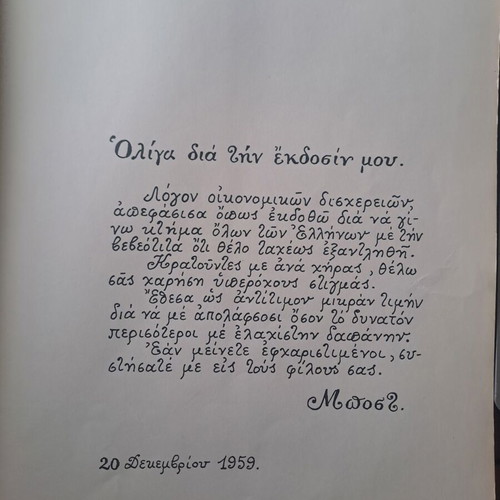 Ὀλίγα διά τήν ἔκδοσίν μου.
Λόγον οἰκονομικῶν δισχερειῶν,
ἀπεφάσισα ὅπως ἐκδοθῶ διά νά γί-
νω κτῆμα ὅλων τῶν Ἑλλήνων μέ τήν
βεβεότιτά ὅτι θέλο ταχέως ἐξαντληθῆ.
Κρατοῦντες με ἀνά χήρας, θέλω
σᾶς χαρήση ὑπερόχους στιγμάς.
Ἔθεσα ὡς ἀντίτιμον μικράν τιμήν
διά νά μέ ἀπολάφσοσι ὅσον τό δυνατόν
περισότεροι μέ ἐλαχίστην δαπάνην.
Ἐάν μείνετε ἐφχαριστιμένοι, συ-
στήσατέ με εἰς τούς φίλους σας.
Μποστ.
20 Δεκεμβρίου 1959.